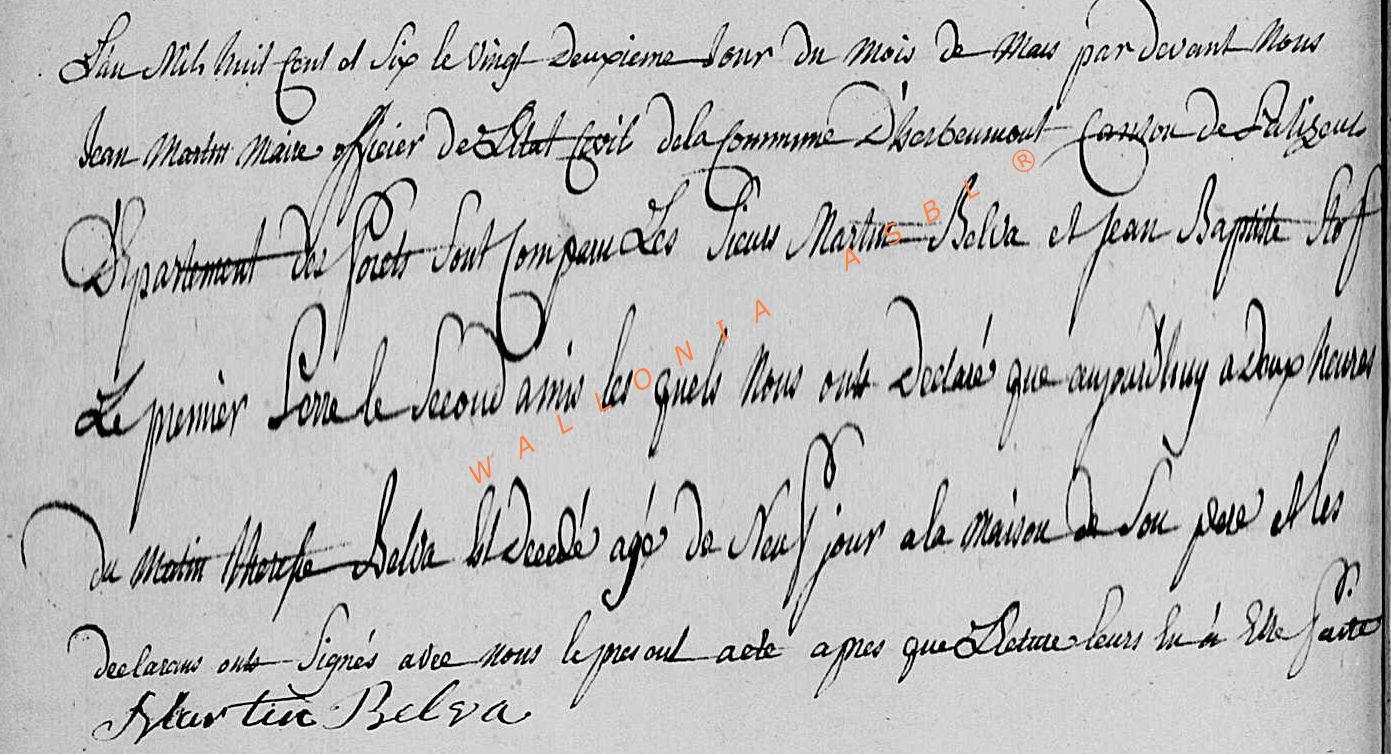 L'an Mil huit Cent et Six le Vingt deuxieme Jour du Mois de Mars par devant Nous
Jean Martin Maire officier de Létat Civil de la Commune D'herbeumont Canton de Palizeul
Département des forets Sont Comparu Les Sieurs Martin Belva et Jean Baptiste
Le premier Perre le Second amis les quels Nous onts Declaré que aujourdhuy a Deux heures
du Matin Therese Belva Est Decedé agé de Neuf jour a la Maison de Son pere et les
declarans onts Signés avec nous le present acte apres que Lecture leurs En à Etté faitte
Martin Belva
WALLONIA ASBL ®